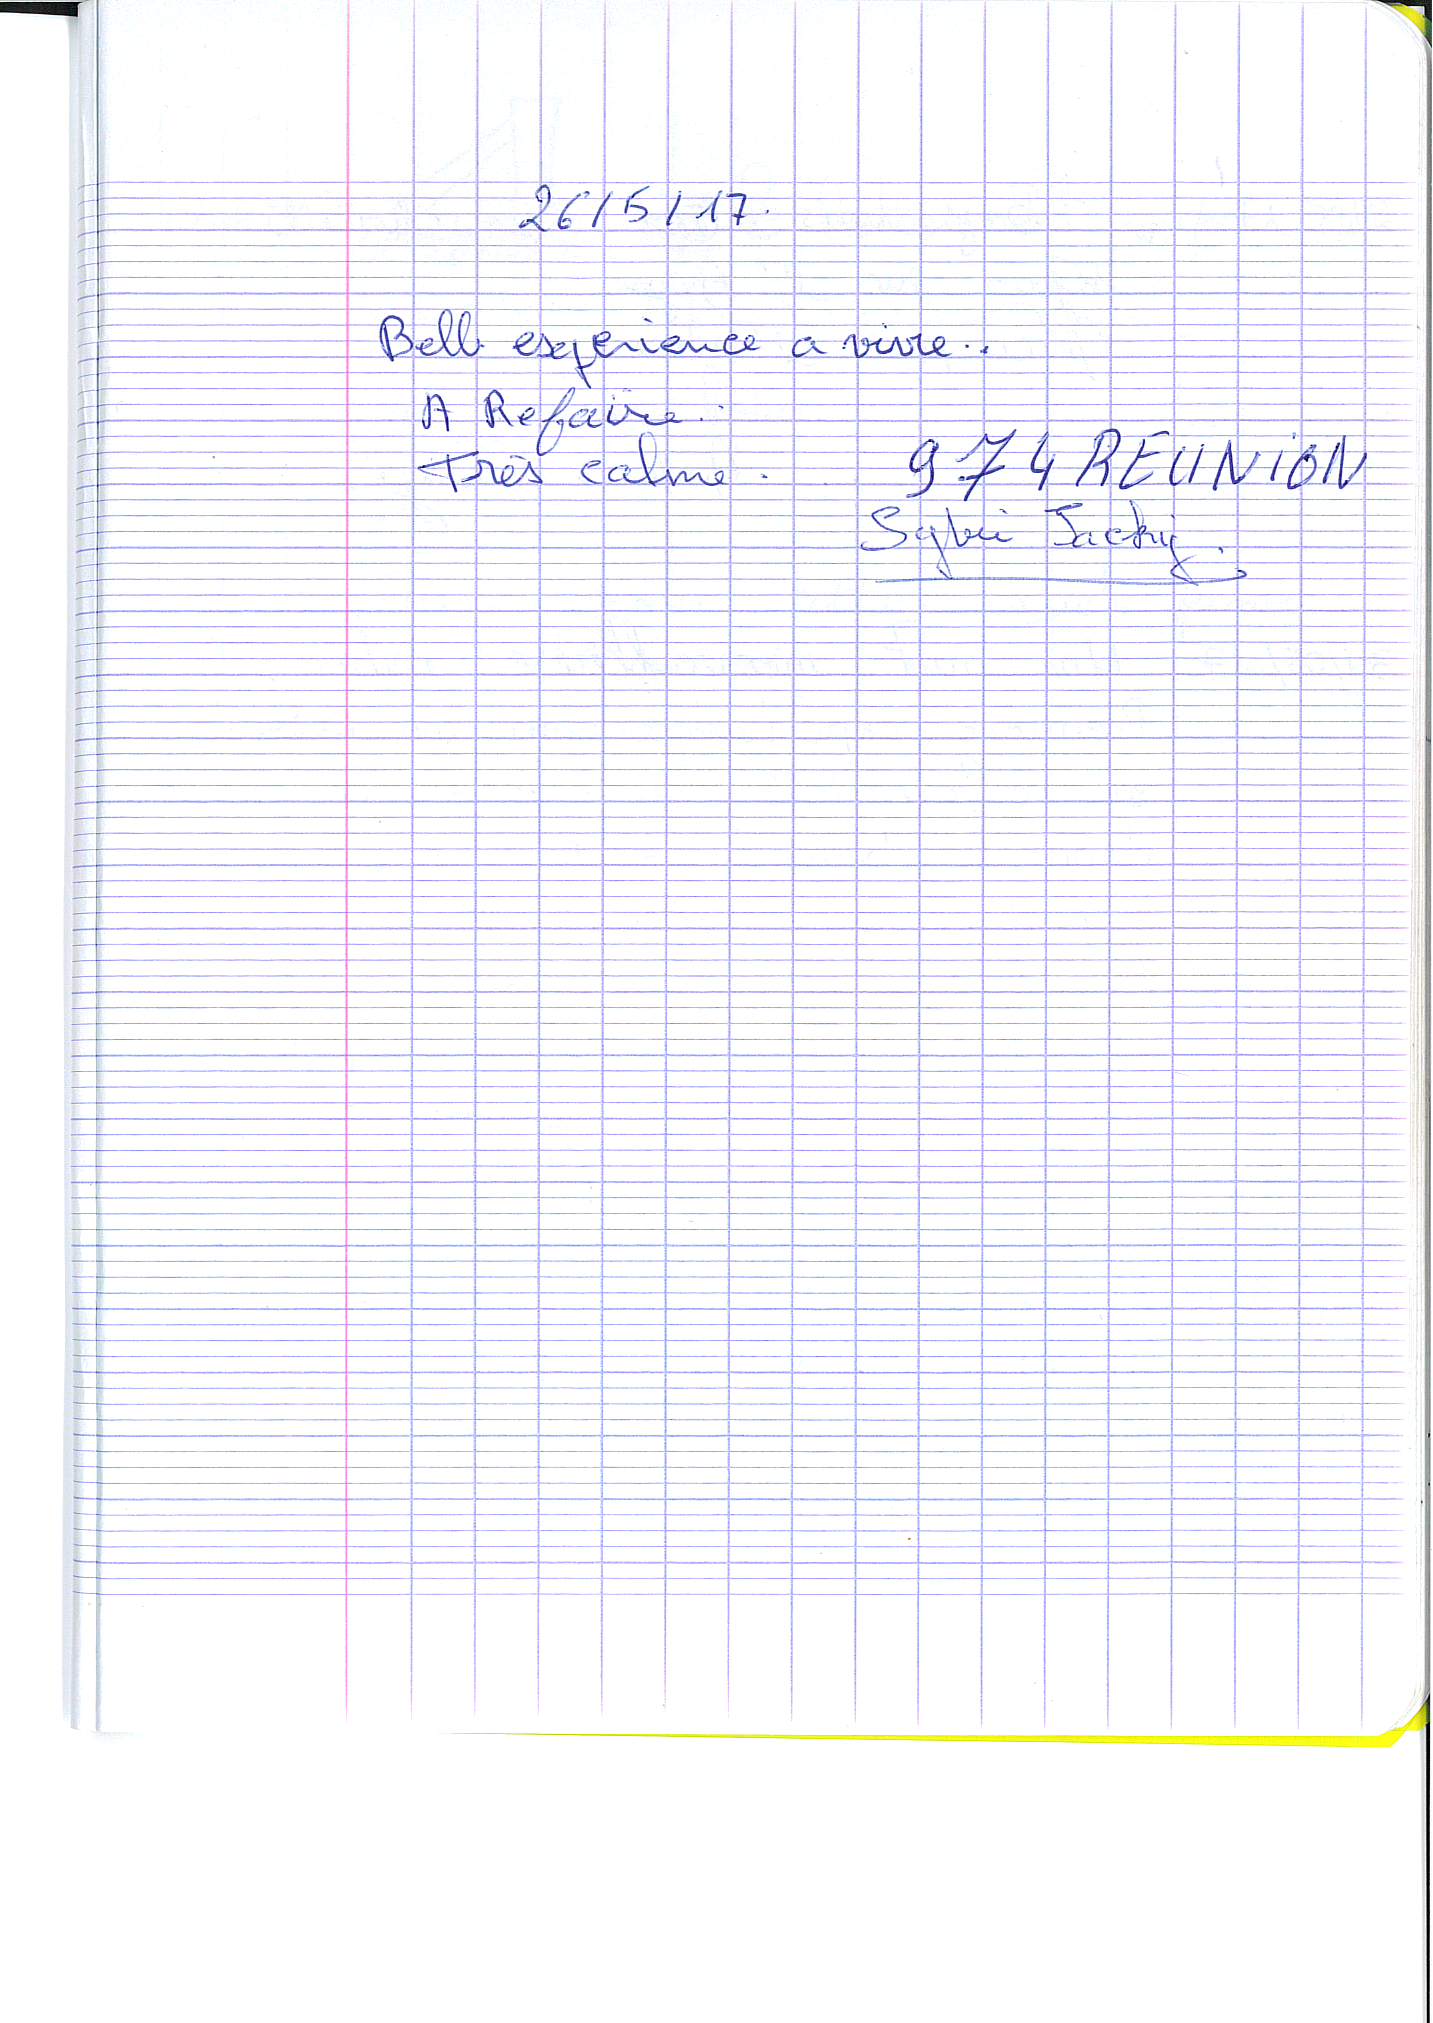 26/5/17.
Belle experience a vivre..
A Refaire..
Très calme.
974 REUNiON
Sylvie Jacky.